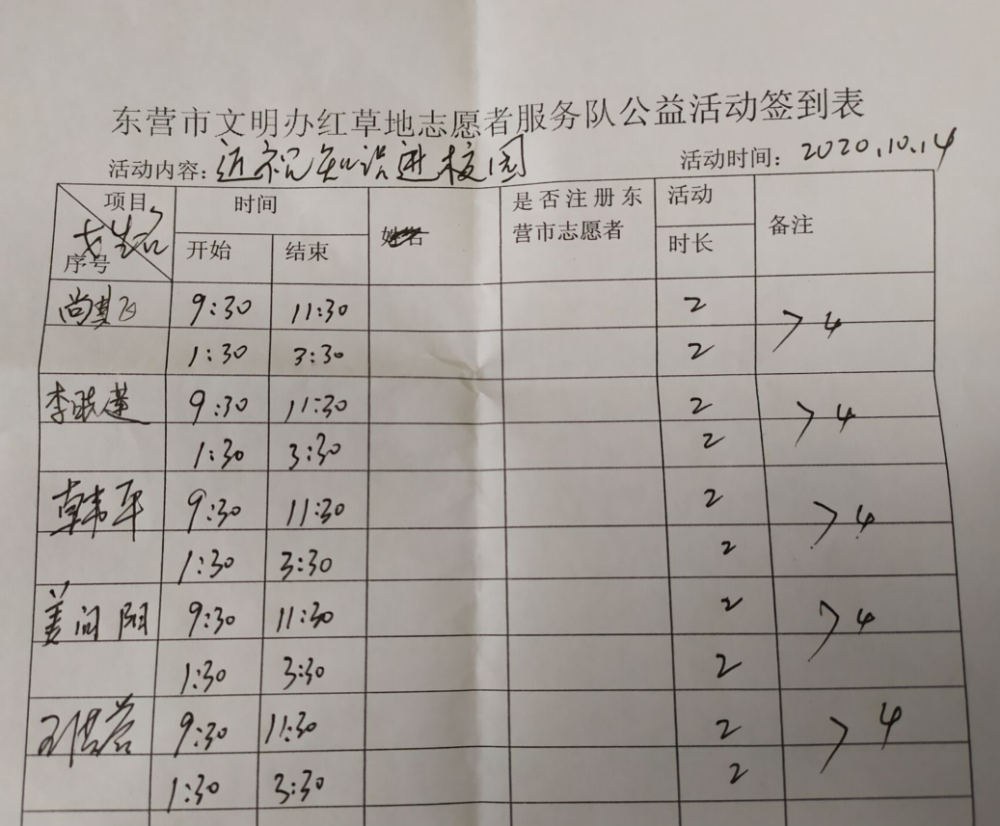 东营市文明办红草地志愿者服务队公益活动签到表
活动内容:近视知识进校园 活动时间: 2020.10.14
项目 时间 姓名 是否注册东营市志愿者 活动时长 备注
姓名
序号 开始 结束
9:30 11:30 2
1:30 3:30 2 >4
9:30 11:30 2
1:30 3:30 2 >4
韩军 9:30 11:30 2
1:30 3:30 2 >4
姜向阳 9:30 11:30 2
1:30 3:30 2 >4
9:30 11:30 2
1:30 3:30 2 >4